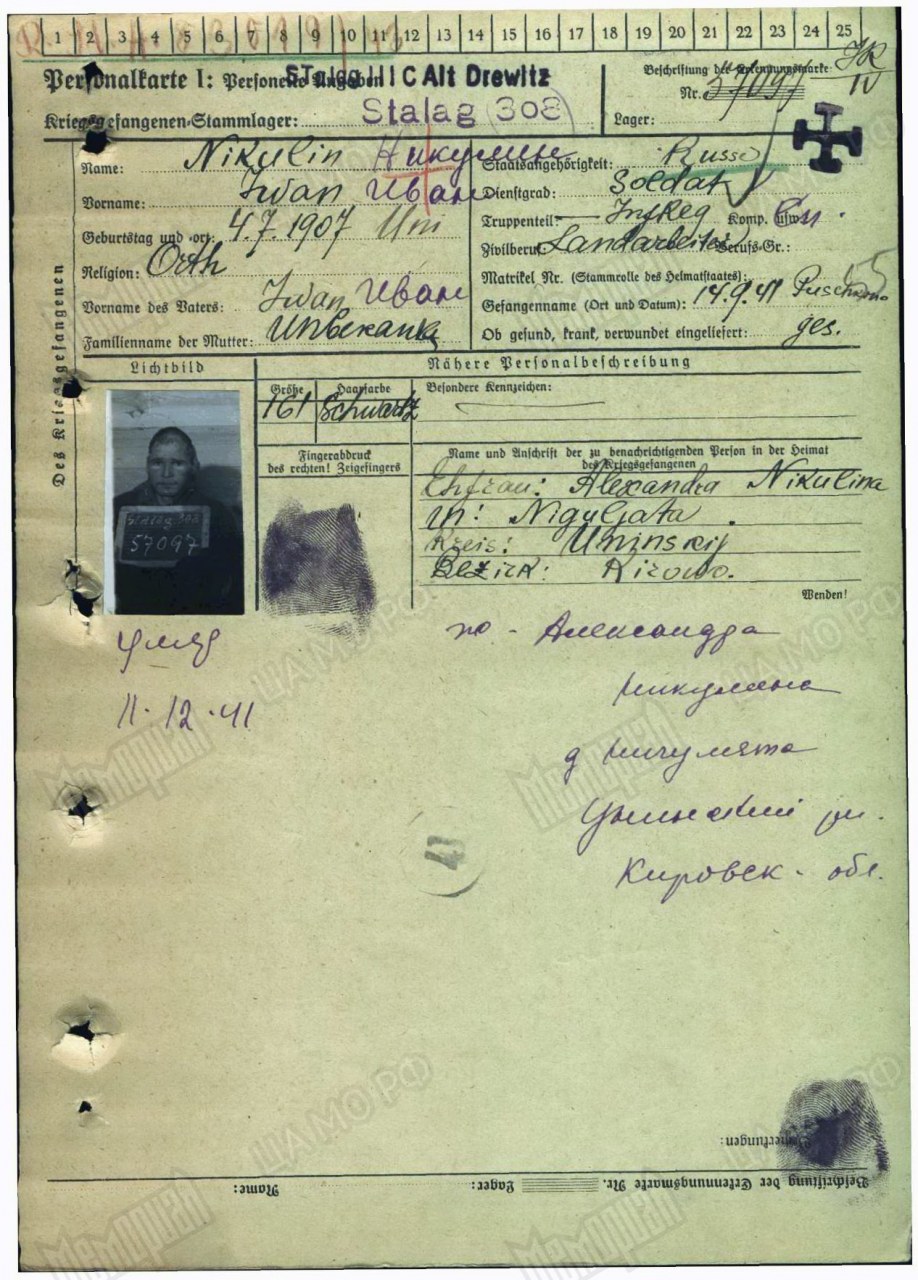 1 2 3 4 5 6 7 8 9 10 11 12 13 14 15 16 17 18 19 20 21 22 23 24 25
Personalkarte I: Personelle Angaben
Stalag III C Alt Drewitz
Kriegsgefangenen-Stammlager: Stalag 308
Beschriftung der Erkennungsmarke
Nr. 57097
Lager:
Des Kriegsgefangenen
Name: Nikulin Никулин
Vorname: Iwan Иван
Geburtstag und -ort: 4.7.1907 Uni
Religion: Orth
Vorname des Vaters: Iwan Иван
Familienname der Mutter: Unbekannt
Staatsangehörigkeit: Russe
Dienstgrad: Soldat
Truppenteil: Inf Reg Komp. usw.
Zivilberuf: Landarbeiter Berufs-Gr.:
Matrikel Nr. (Stammrolle des Heimatstaates):
Gefangennahme (Ort und Datum): 14.9.41
Ob gesund, krank, verwundet eingeliefert: ges.
Lichtbild
Nähere Personalbeschreibung
Größe
161
Haarfarbe
Schwartz
Besondere Kennzeichen:
Fingerabdruck
des rechten! Zeigefingers
Name und Anschrift der zu benachrichtigenden Person in der Heimat
des Kriegsgefangenen
Ehfrau: Alexandra Nikulina
in: Niguljata
Kreis: Uninskij
Bezirk: Kirowo.
Wenden!
Stalag 308
57097
умер
11.12.41
Александра
Никулина
д Нигулята
Унинский
Кировск. обл.
43
Bemerkungen:
Beschriftung der Erkennungsmarke Nr.
Lager:
Name:
Мемориал
ЦАМО РФ